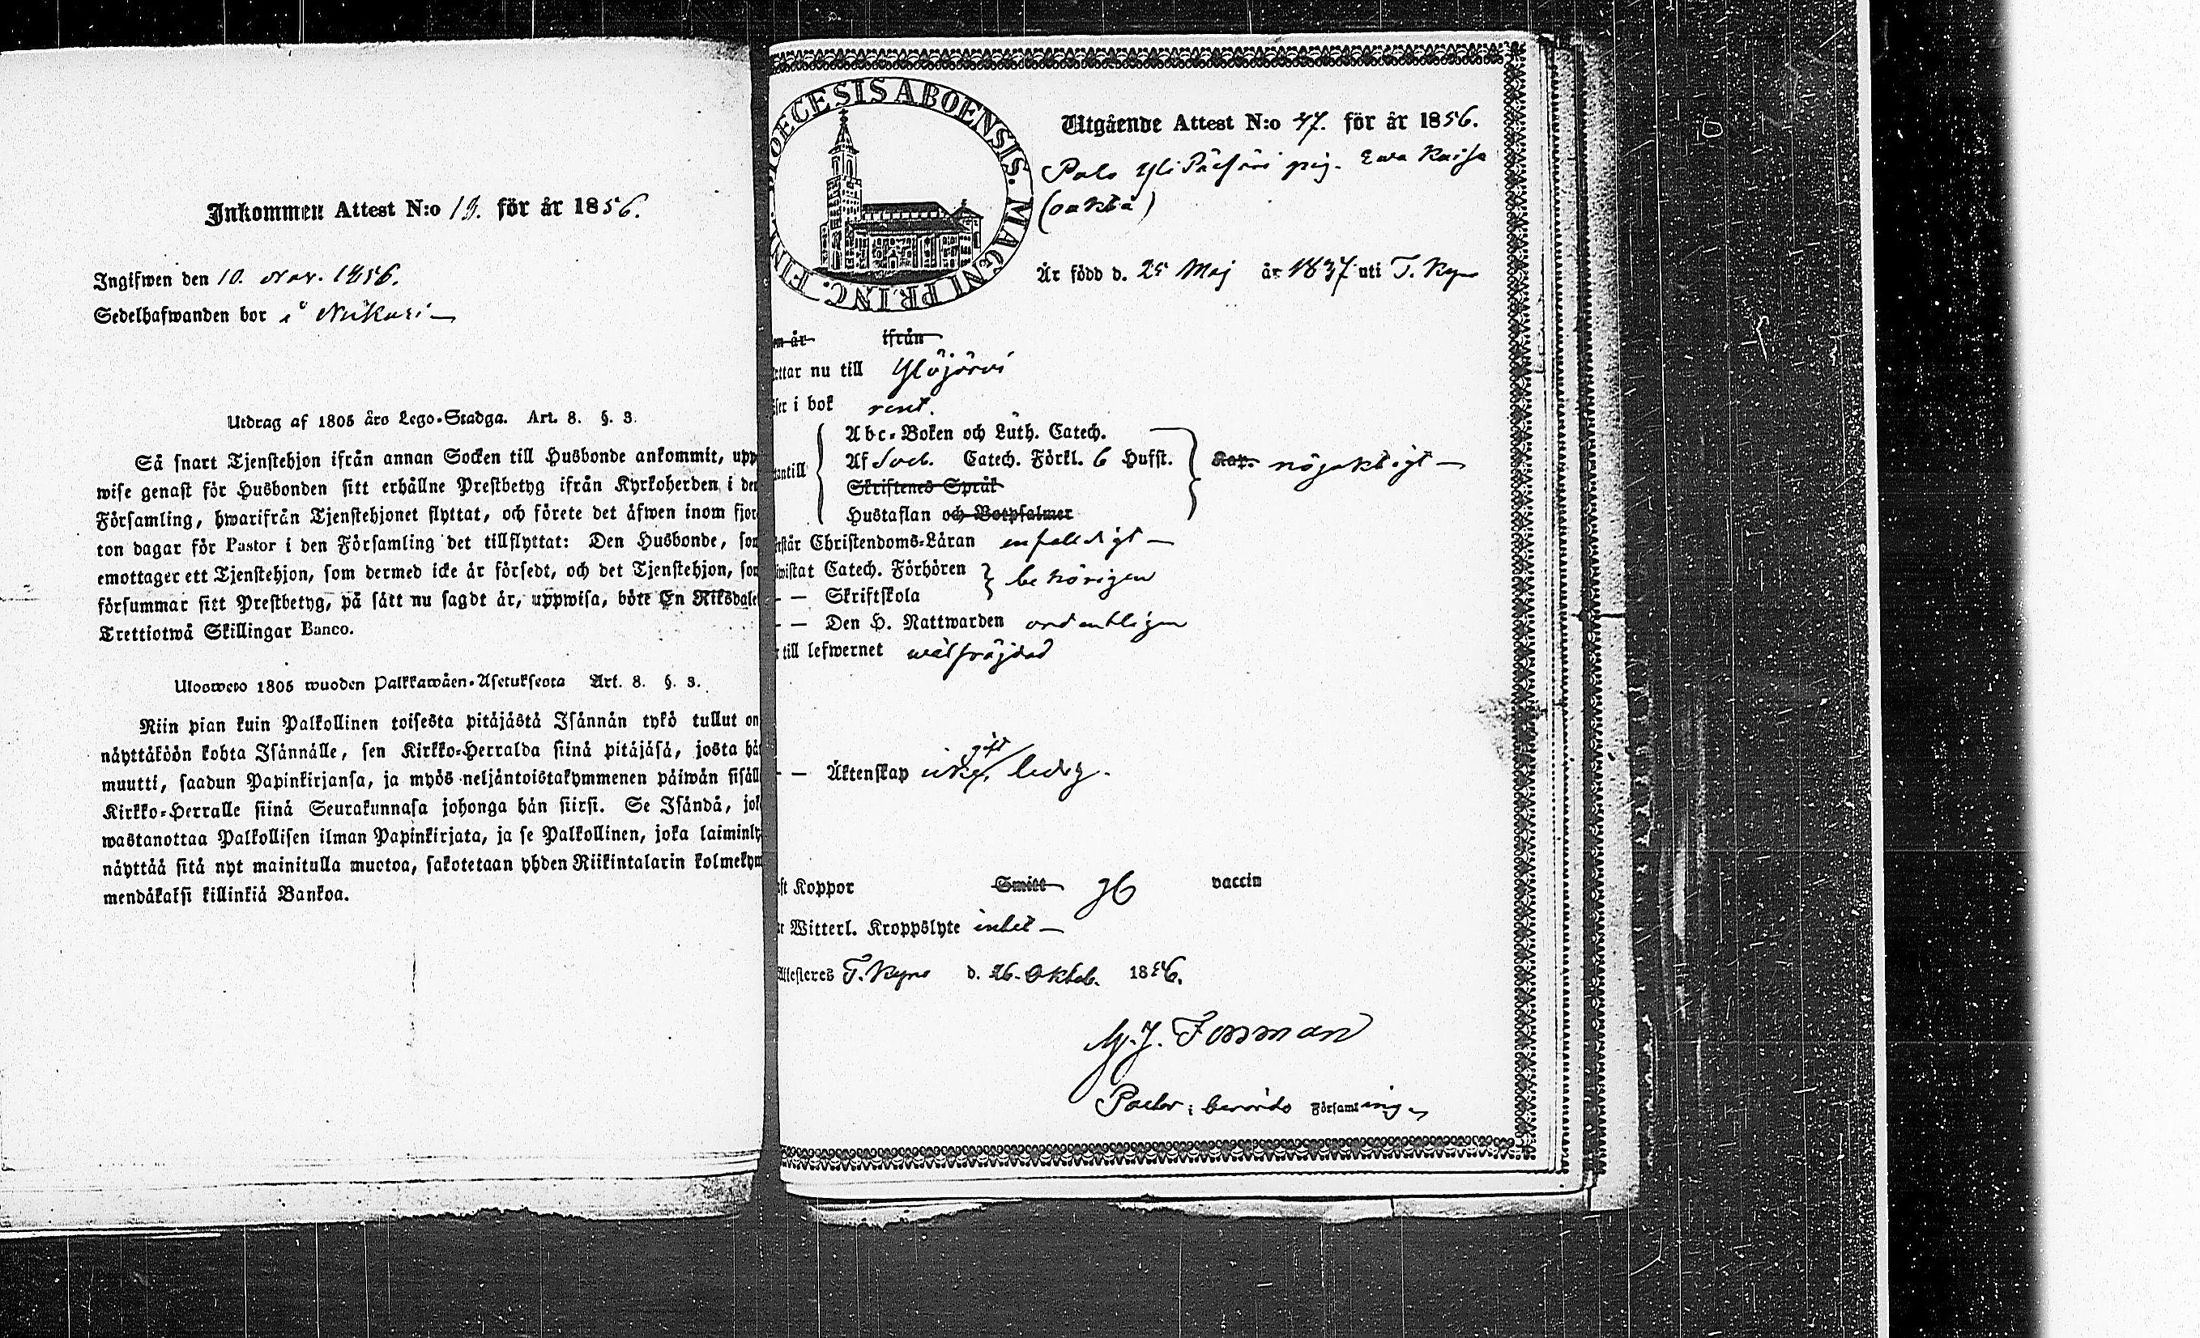 Inkommen Attest N:o 19. för år 1856.
Ingifwen den 10. Nov. 1856.
Sedelhafwanden bor i
Utdrag af 1805 års Lego-Stadga. Art. 8. §. 3.
Så snart Tjenstehjon ifrån annan Socken till Husbonde ankommit, upp
wise genast för Husbonden sitt erhållne Prestbetyg ifrån Kyrkoherden i den
Församling, hwarifrån Tjenstehjonet flyttat, och förete det äfwen inom fjor
ton dagar för Pastor i den Församling det tillflyttat: Den Husbonde, som
emottager ett Tjenstehjon, som dermed icke är försedt, och det Tjenstehjon, som
försummar sitt Prestbetyg, på sätt nu sagdt är, uppwisa, böte En Riksdaler
Trettiotwå Skillingar Banco.
Ulosweto 1805 wuoden Palkkawäen-Asetuksesta Art. 8. §. 3.
Niin pian kuin Palkollinen toisesta pitäjästä Isännän tykö tullut on
näyttäköön kohta Isännälle, sen Kirkko-Herralda siinä pitäjäsä, josta hän
muutti, saadun Papinkirjansa, ja myös neljäntoistakymmenen päiwän sisäll
Kirkko-Herralle siinä Seurakunnasa johonga hän siirsi. Se Isändä, joka
wastanottaa Palkollisen ilman Papinkirjata, ja se Palkollinen, joka laiminly
näyttää sitä nyt mainitulla muotoa, sakotetaan yhden Riikintalarin kolmekym
mendäkaksi killinkiä Bankoa.
DIOECESIS ABOENSIS. MAGNI PRINC. FINL.
Utgående Attest N:o 47. för år 1856.
pig. Ewa Kaisa
(oäkta)
Är född d. 25 Maj år 1837 uti T. Kyro
en år ifrån
ttar nu till Ylöjärvi
ser i bok rent.
Abc-Boken och Luth. Catech.
Af Sveb. Catech. Förkl. 6 Hufst. Kap. nöjaktigt
antill
Skriftenes Språk
Hustaflan och Botpsalmer
rstår Christendoms-Läran enfaldigt
wistat Catech. Förhören behörigen
- — Skriftskola
- — Den H. Nattwarden ordentligen
till lefwernet wälfräjdad
gift
- — Äktenskap icke, ledig.
ft Koppor Smitt gb vaccin
r Witterl. Kroppslyte intet
Attesteres T. Kyro d. 26. Oktob. 1856.
Forsman
Pastor i berörde Församlingen